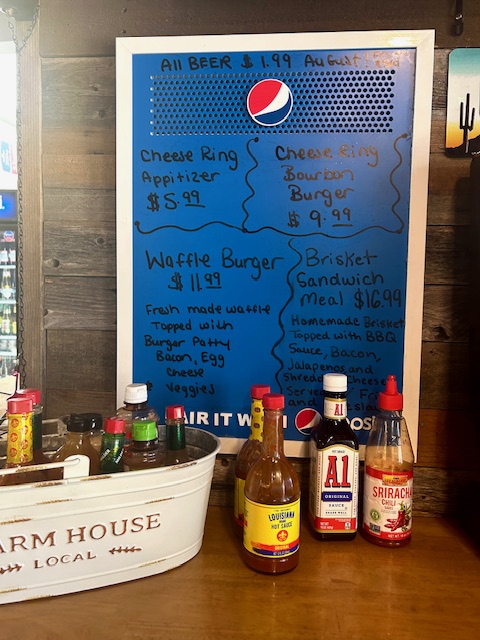 All BEER $1.99 August!
Cheese Ring
Appitizer
$5.99
Cheese Ring
Bourbon
Burger
$9.99
Waffle Burger
$11.99
Fresh made waffle
Topped with
Burger Patty
Bacon, Egg
Cheese
& Veggies
Brisket
Sandwich
Meal $16.99
Homemade Brisket
Topped with BBQ
Sauce, Bacon,
Jalapenos and
Shredded Cheese
Served
and
AIR IT WITH
ARM HOUSE
LOCAL
LOUISIANA
HOT SAUCE
A1
A1
ORIGINAL
SAUCE
SRIRACHA
CHILI